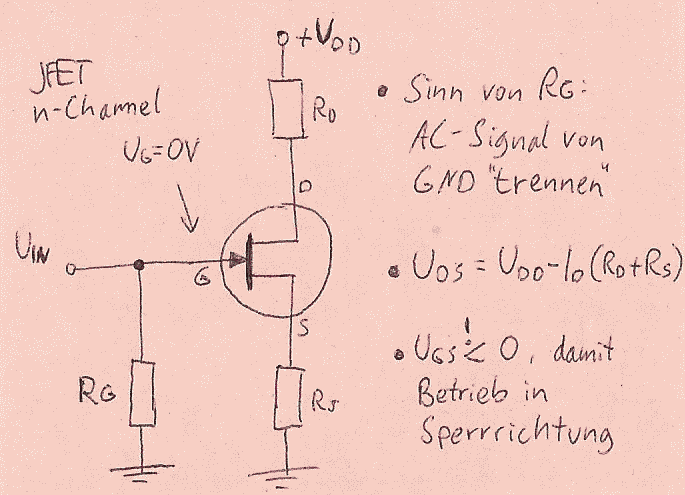 +UDD
JFET
n-Channel
UG=0V
RD
D
UIN
G
S
RG
RS
• Sinn von RG:
AC-Signal von
GND "trennen"
• UDS = UDD-ID(RD+RS)
• UGS !< 0, damit
Betrieb in
Sperrrichtung